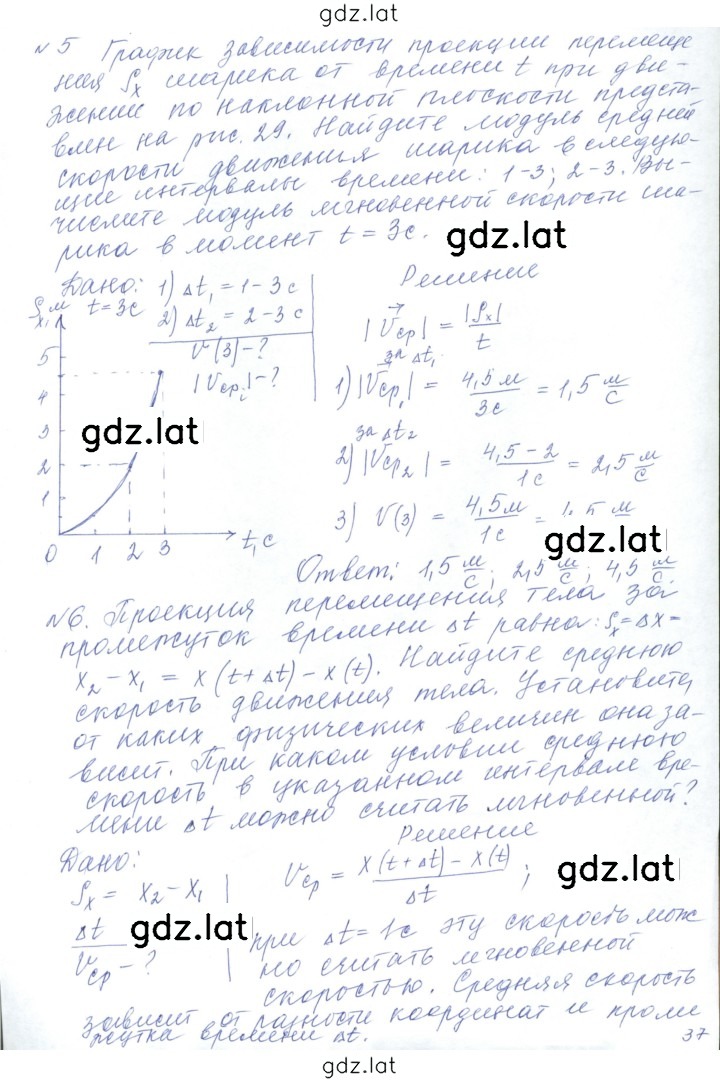 gdz.lat
№5 График зависимости проекции перемеще
ния Sx шарика от времени t при дви-
жении по наклонной плоскости предста-
влен на рис. 29. Найдите модуль средней
скорости движения шарика в следую-
щие интервалы времени: 1-3; 2-3. Вы-
числите модуль мгновенной скорости ша-
рика в момент t = 3с.
gdz.lat
Дано: 1) Δt₁ = 1-3 с
t = 3с 2) Δt₂ = 2-3 с
V(3) - ?
|Vcpᵢ| - ?
Sx, м
5
4
3
2
1
0 1 2 3 t, с
gdz.lat
Решение
|Vcp| = |Sx|/t
за Δt₁
1) |Vcp₁| = 4,5 м/3с = 1,5 м/с
за Δt₂
2) |Vcp₂| = 4,5 - 2/1с = 2,5 м/с
3) V(3) = 4,5м/1с =
gdz.lat
Ответ: 1,5 м/с; 2,5 м/с; 4,5 м/с.
№6. Проекция перемещения тела за
промежуток времени Δt равна: Sx = Δx =
x₂ - x₁ = x(t + Δt) - x(t). Найдите среднюю
скорость движения тела. Установите,
от каких физических величин она за-
висит. При каком условии среднюю
скорость в указанном интервале вре-
мени Δt можно считать мгновенной?
Решение
Дано:
Sx = x₂ - x₁
Δt
Vcp - ?
gdz.lat
Vcp = x(t + Δt) - x(t)/Δt ;
gdz.lat
при Δt = 1с эту скорость мож
но считать мгновенной
скоростью. Средняя скорость
зависит от разности координат и проме
жутка времени Δt.
37
gdz.lat